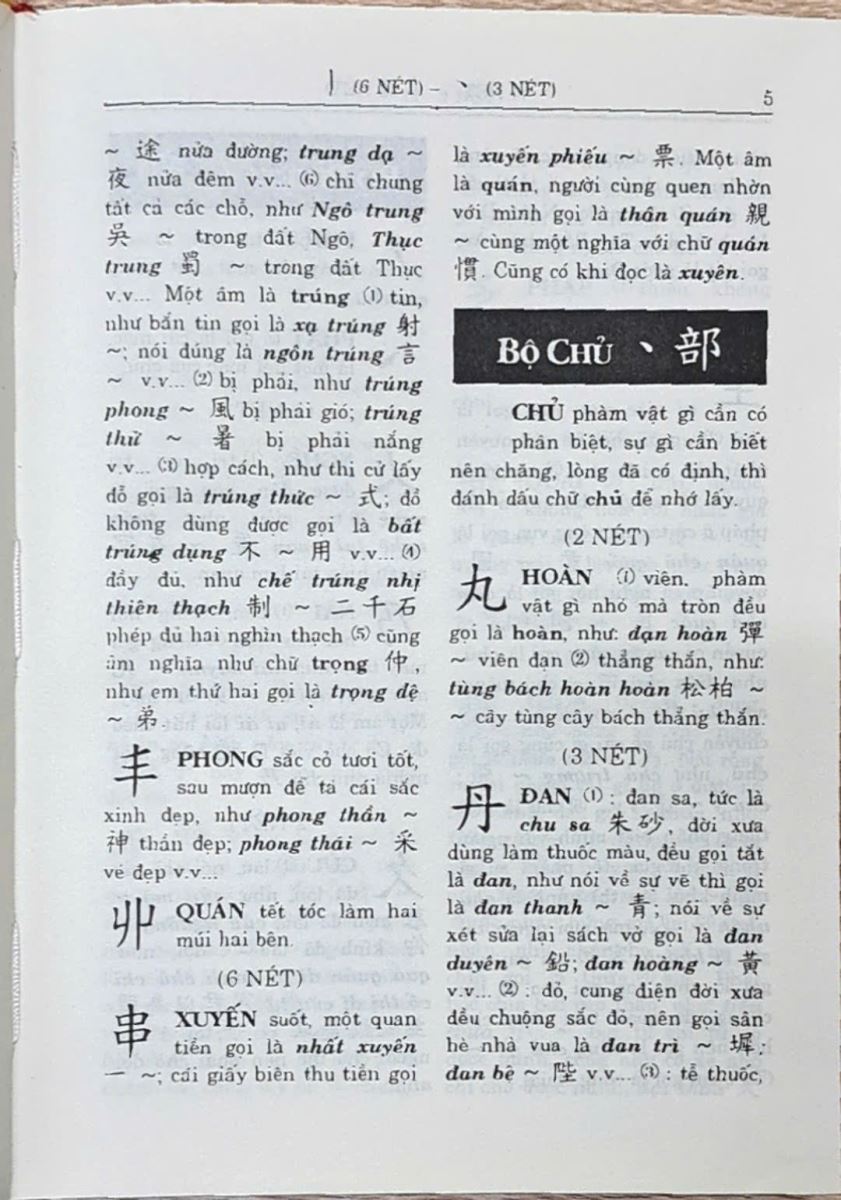 丨 (6 NÉT) – 丶 (3 NÉT)
5
~ 途 nửa đường; trung dạ ~
夜 nửa đêm v.v... ⑹ chỉ chung
tất cả các chỗ, như Ngô trung
吳 ~ trong đất Ngô, Thục
trung 蜀 ~ trong đất Thục
v.v... Một âm là trúng ⑴ tin,
như bắn tin gọi là xạ trúng 射
~; nói đúng là ngôn trúng 言
~ v.v... ⑵ bị phải, như trúng
phong ~ 風 bị phải gió; trúng
thử ~ 暑 bị phải nắng
v.v... ⑶ hợp cách, như thi cử lấy
đỗ gọi là trúng thức ~ 式; đồ
không dùng được gọi là bất
trúng dụng 不 ~ 用 v.v... ⑷
đầy đủ, như chế trúng nhị
thiên thạch 制 ~ 二千石
phép đủ hai nghìn thạch ⑸ cũng
âm nghĩa như chữ trọng 仲,
như em thứ hai gọi là trọng đệ
~ 弟
丰 PHONG sắc cỏ tươi tốt,
sau mượn để tả cái sắc
xinh đẹp, như phong thần ~
神 thần đẹp; phong thái ~ 采
vẻ đẹp v.v...
丱 QUÁN tết tóc làm hai
múi hai bên.
(6 NÉT)
串 XUYẾN suốt, một quan
tiền gọi là nhất xuyến
一 ~; cái giấy biên thu tiền gọi
là xuyến phiếu ~ 票. Một âm
là quán, người cùng quen nhờn
với mình gọi là thân quán 親
~ cùng một nghĩa với chữ quán
慣. Cũng có khi đọc là xuyên.
BỘ CHỦ 丶 部
CHỦ phàm vật gì cần có
phân biệt, sự gì cần biết
nên chăng, lòng đã có định, thì
đánh dấu chữ chủ để nhớ lấy.
(2 NÉT)
丸 HOÀN ⑴ viên. phàm
vật gì nhỏ mà tròn đều
gọi là hoàn, như: đạn hoàn 彈
~ viên đạn ⑵ thẳng thắn, như:
tùng bách hoàn hoàn 松柏 ~
~ cây tùng cây bách thẳng thắn.
(3 NÉT)
丹 ĐAN ⑴ : đan sa, tức là
chu sa 朱砂, đời xưa
dùng làm thuốc màu, đều gọi tắt
là đan, như nói về sự vẽ thì gọi
là đan thanh ~ 青; nói về sự
xét sửa lại sách vở gọi là đan
duyên ~ 鉛; đan hoàng ~ 黃
v.v... ⑵ : đỏ, cung điện đời xưa
đều chuộng sắc đỏ, nên gọi sân
hè nhà vua là đan trì ~ 墀;
đan bệ ~ 陛 v.v... ⑶ : tễ thuốc,